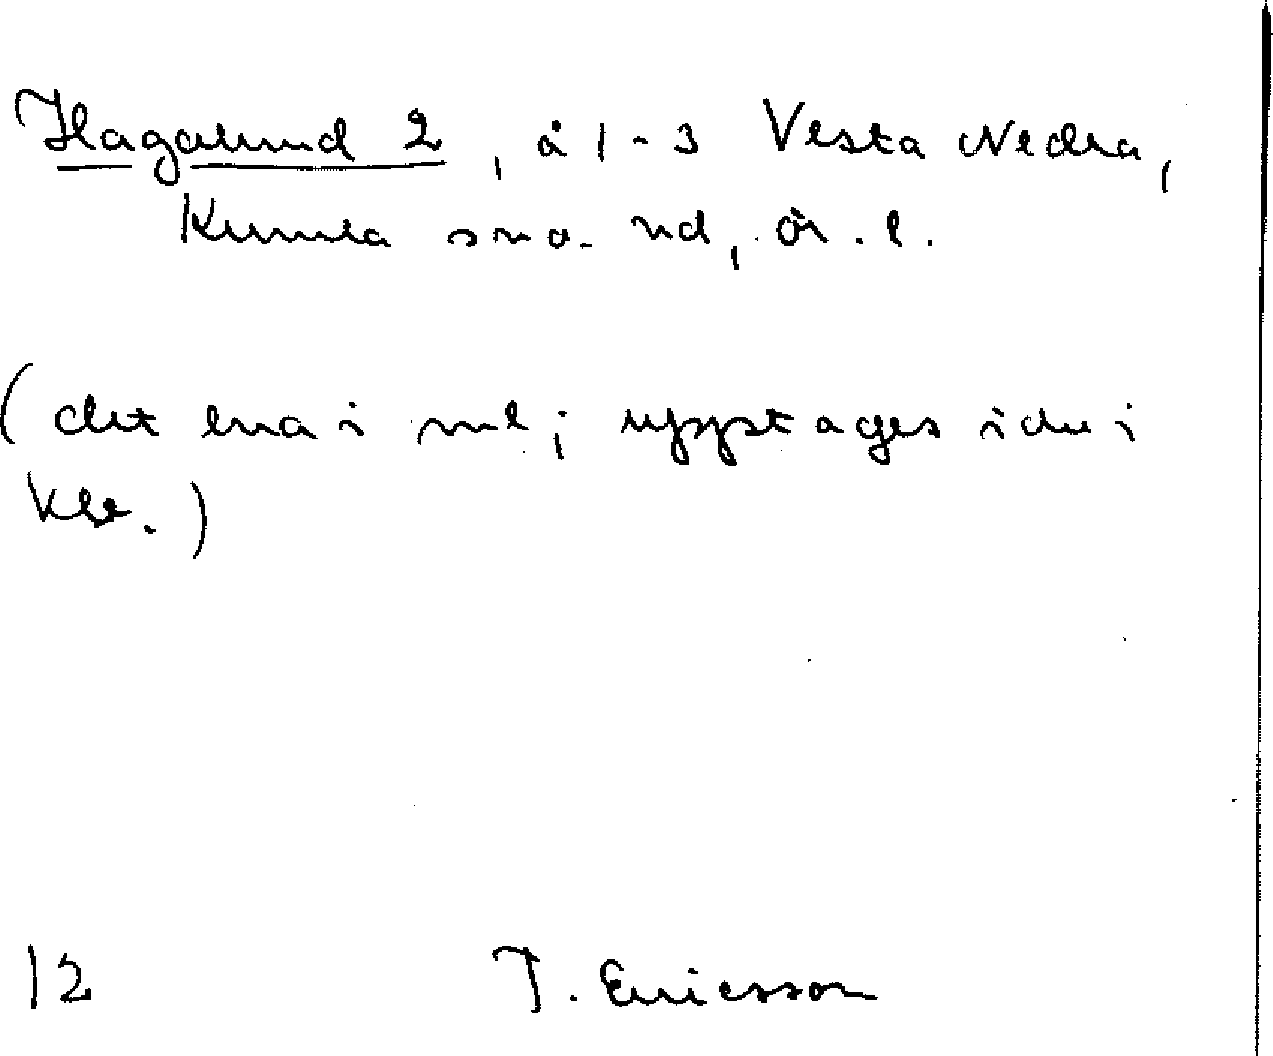 Hagalund 2, å 1-3 Vesta Nedra,
Kumla sn o. hd, ör. l.
(det ena i ml; upptages idu i
kbr.)
12 T. Ericsson